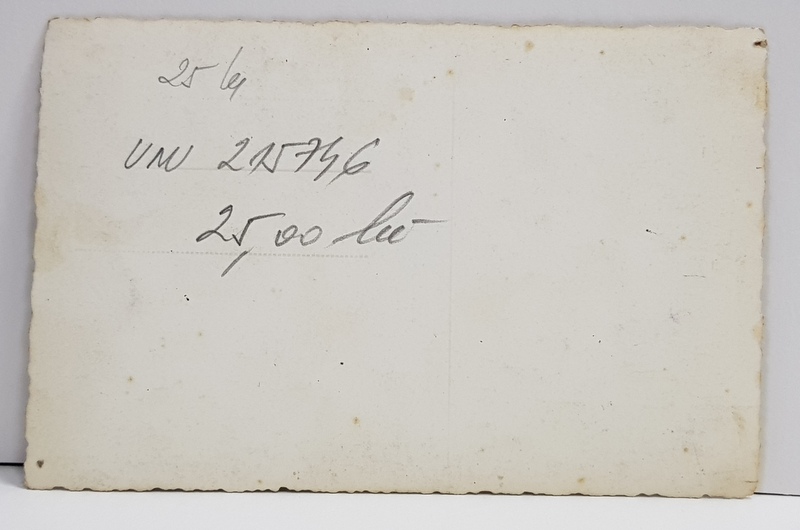 25 lei
UNU 215746
25,00 lei